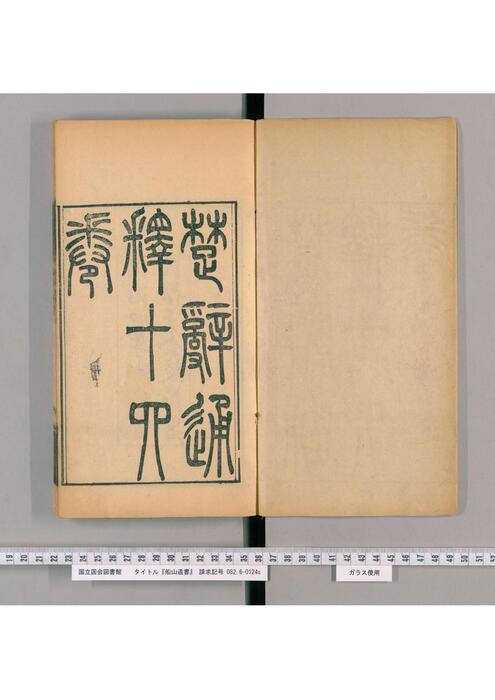 楚辭通
釋十四
卷
19 20 21 22 23 24 25 26 27 28 29 30 31 32 33 34 35 36 37 38 39 40 41 42 43 44 45 46 47 48 49 50 51 52
国立国会図書館 タイトル『船山遺書』 請求記号 082.6-O124s
ガラス使用